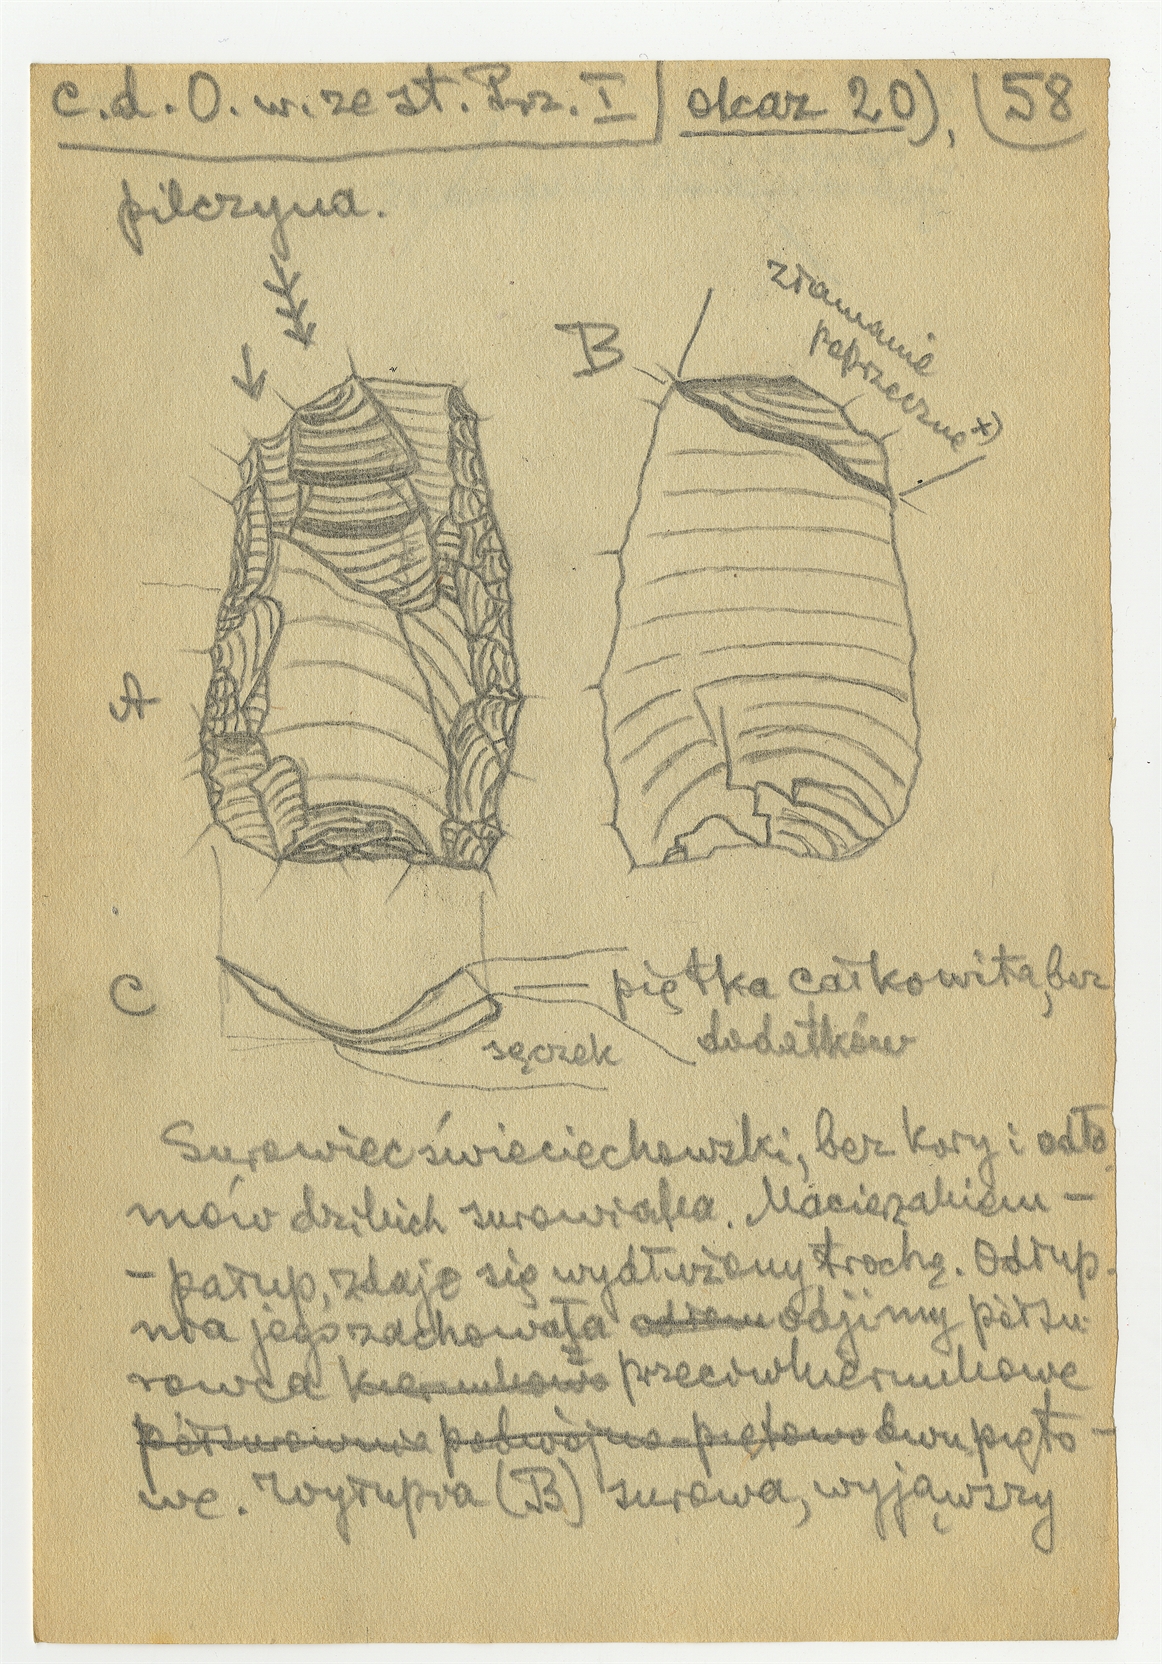 c.d.O.w.ze st. Prz. I okaz 20), 58
pilczyna.
B
złamanie
poprzeczne x)
A
C
piętka całkowita, bez
dodatków
sęczek
Surowiec świeciechowski, bez kory i odło
mów dzikich surowiaka. Macierzakiem -
- patup, zdaje się wydłużony trochę. Odłup-
nia jego zachowała odjimy półsu-
rowca przeciwkierunkowe
półsurowcowe podwójno-piętowo dwupięto-
we. Wyłupia (B) surowa, wyjąwszy